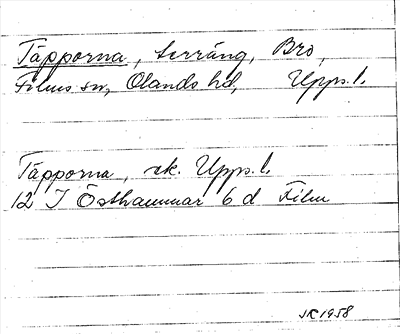 Täpporna, terräng, Bro,
Films sn, Olands hd, Upps. l.
Täpporna, sk. Upps. l.
12 I Östhammar 6 d Film
JK 1958